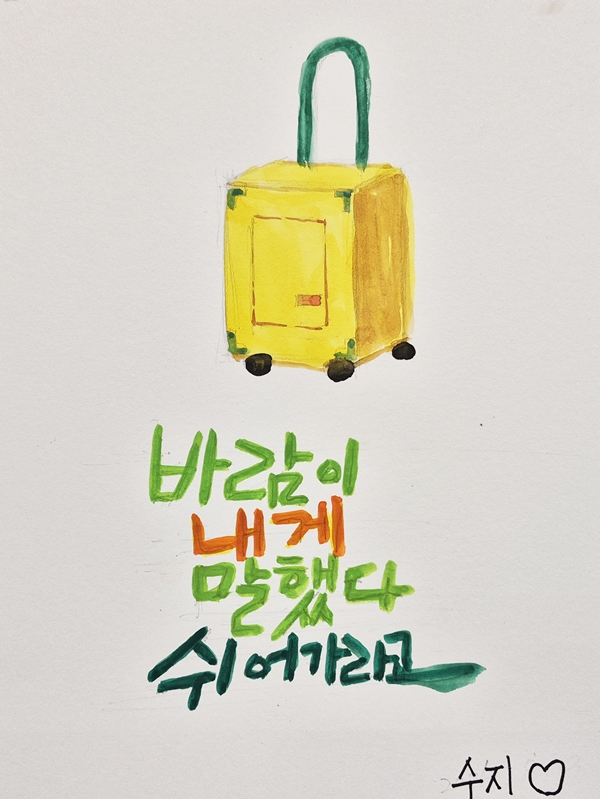 바람이
내게
말했다
쉬어가라고
수지 ♡